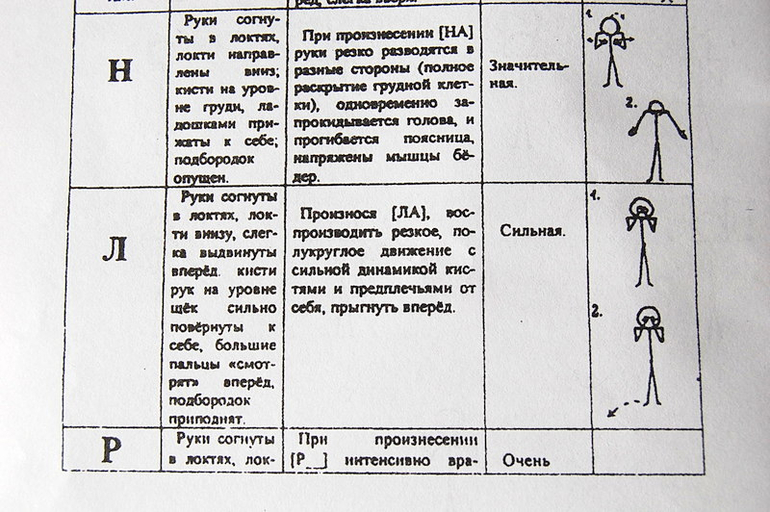 Н
Руки согну-
ты в локтях,
локти направ-
лены вниз;
кисти на уров-
не груди, ла-
дошками при-
жаты к себе;
подбородок
опущен.
При произнесении [НА]
руки резко разводятся в
разные стороны (полное
раскрытие грудной клет-
ки), одновременно за-
прокидывается голова, и
прогибается поясница,
напряжены мышцы бё-
дер.
Значитель-
ная.
1.
2.
Л
Руки согнуты
в локтях, лок-
ти внизу, слег-
ка выдвинуты
вперёд. кисти
рук на уровне
щёк сильно
повёрнуты к
себе, большие
пальцы «смот-
рят» вперёд,
подбородок
приподнят.
Произнося [ЛА], вос-
производить резкое, по-
лукруглое движение с
сильной динамикой кис-
тями и предплечьями от
себя, прыгнуть вперёд.
Сильная.
1.
2.
Р
Руки согнуты
в локтях, лок-
При произнесении
[Р_] интенсивно вра-
Очень